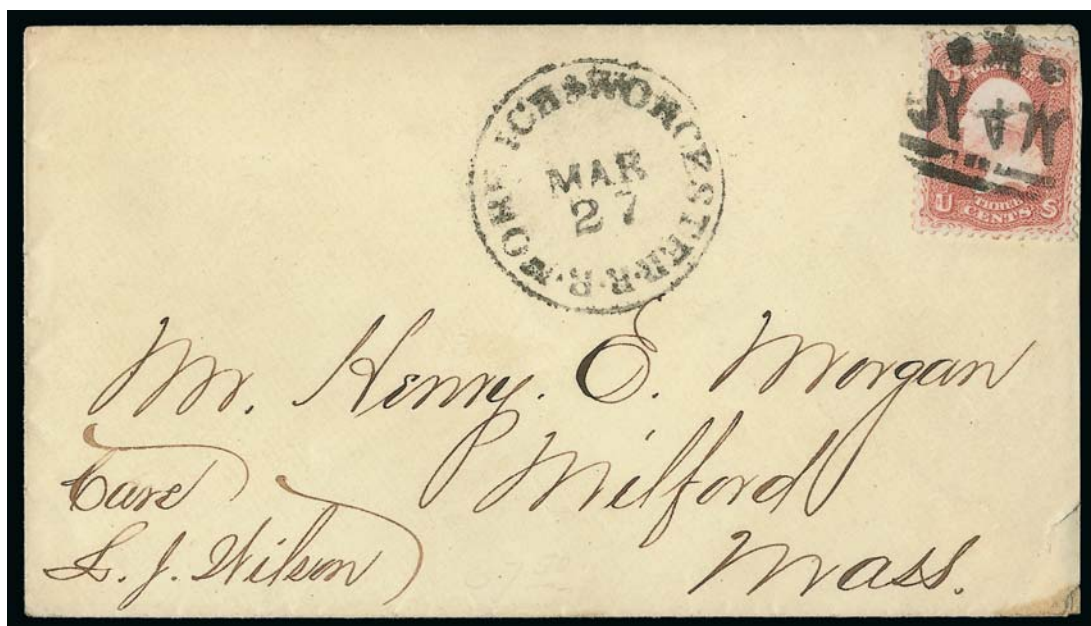 NORWICH & WORCESTER R.R.
MAR
27
POSTAGE
N & W
U S
THREE
CENTS
Mr. Henry. E. Morgan
Milford
Mass.
Care
L. J. Wilson